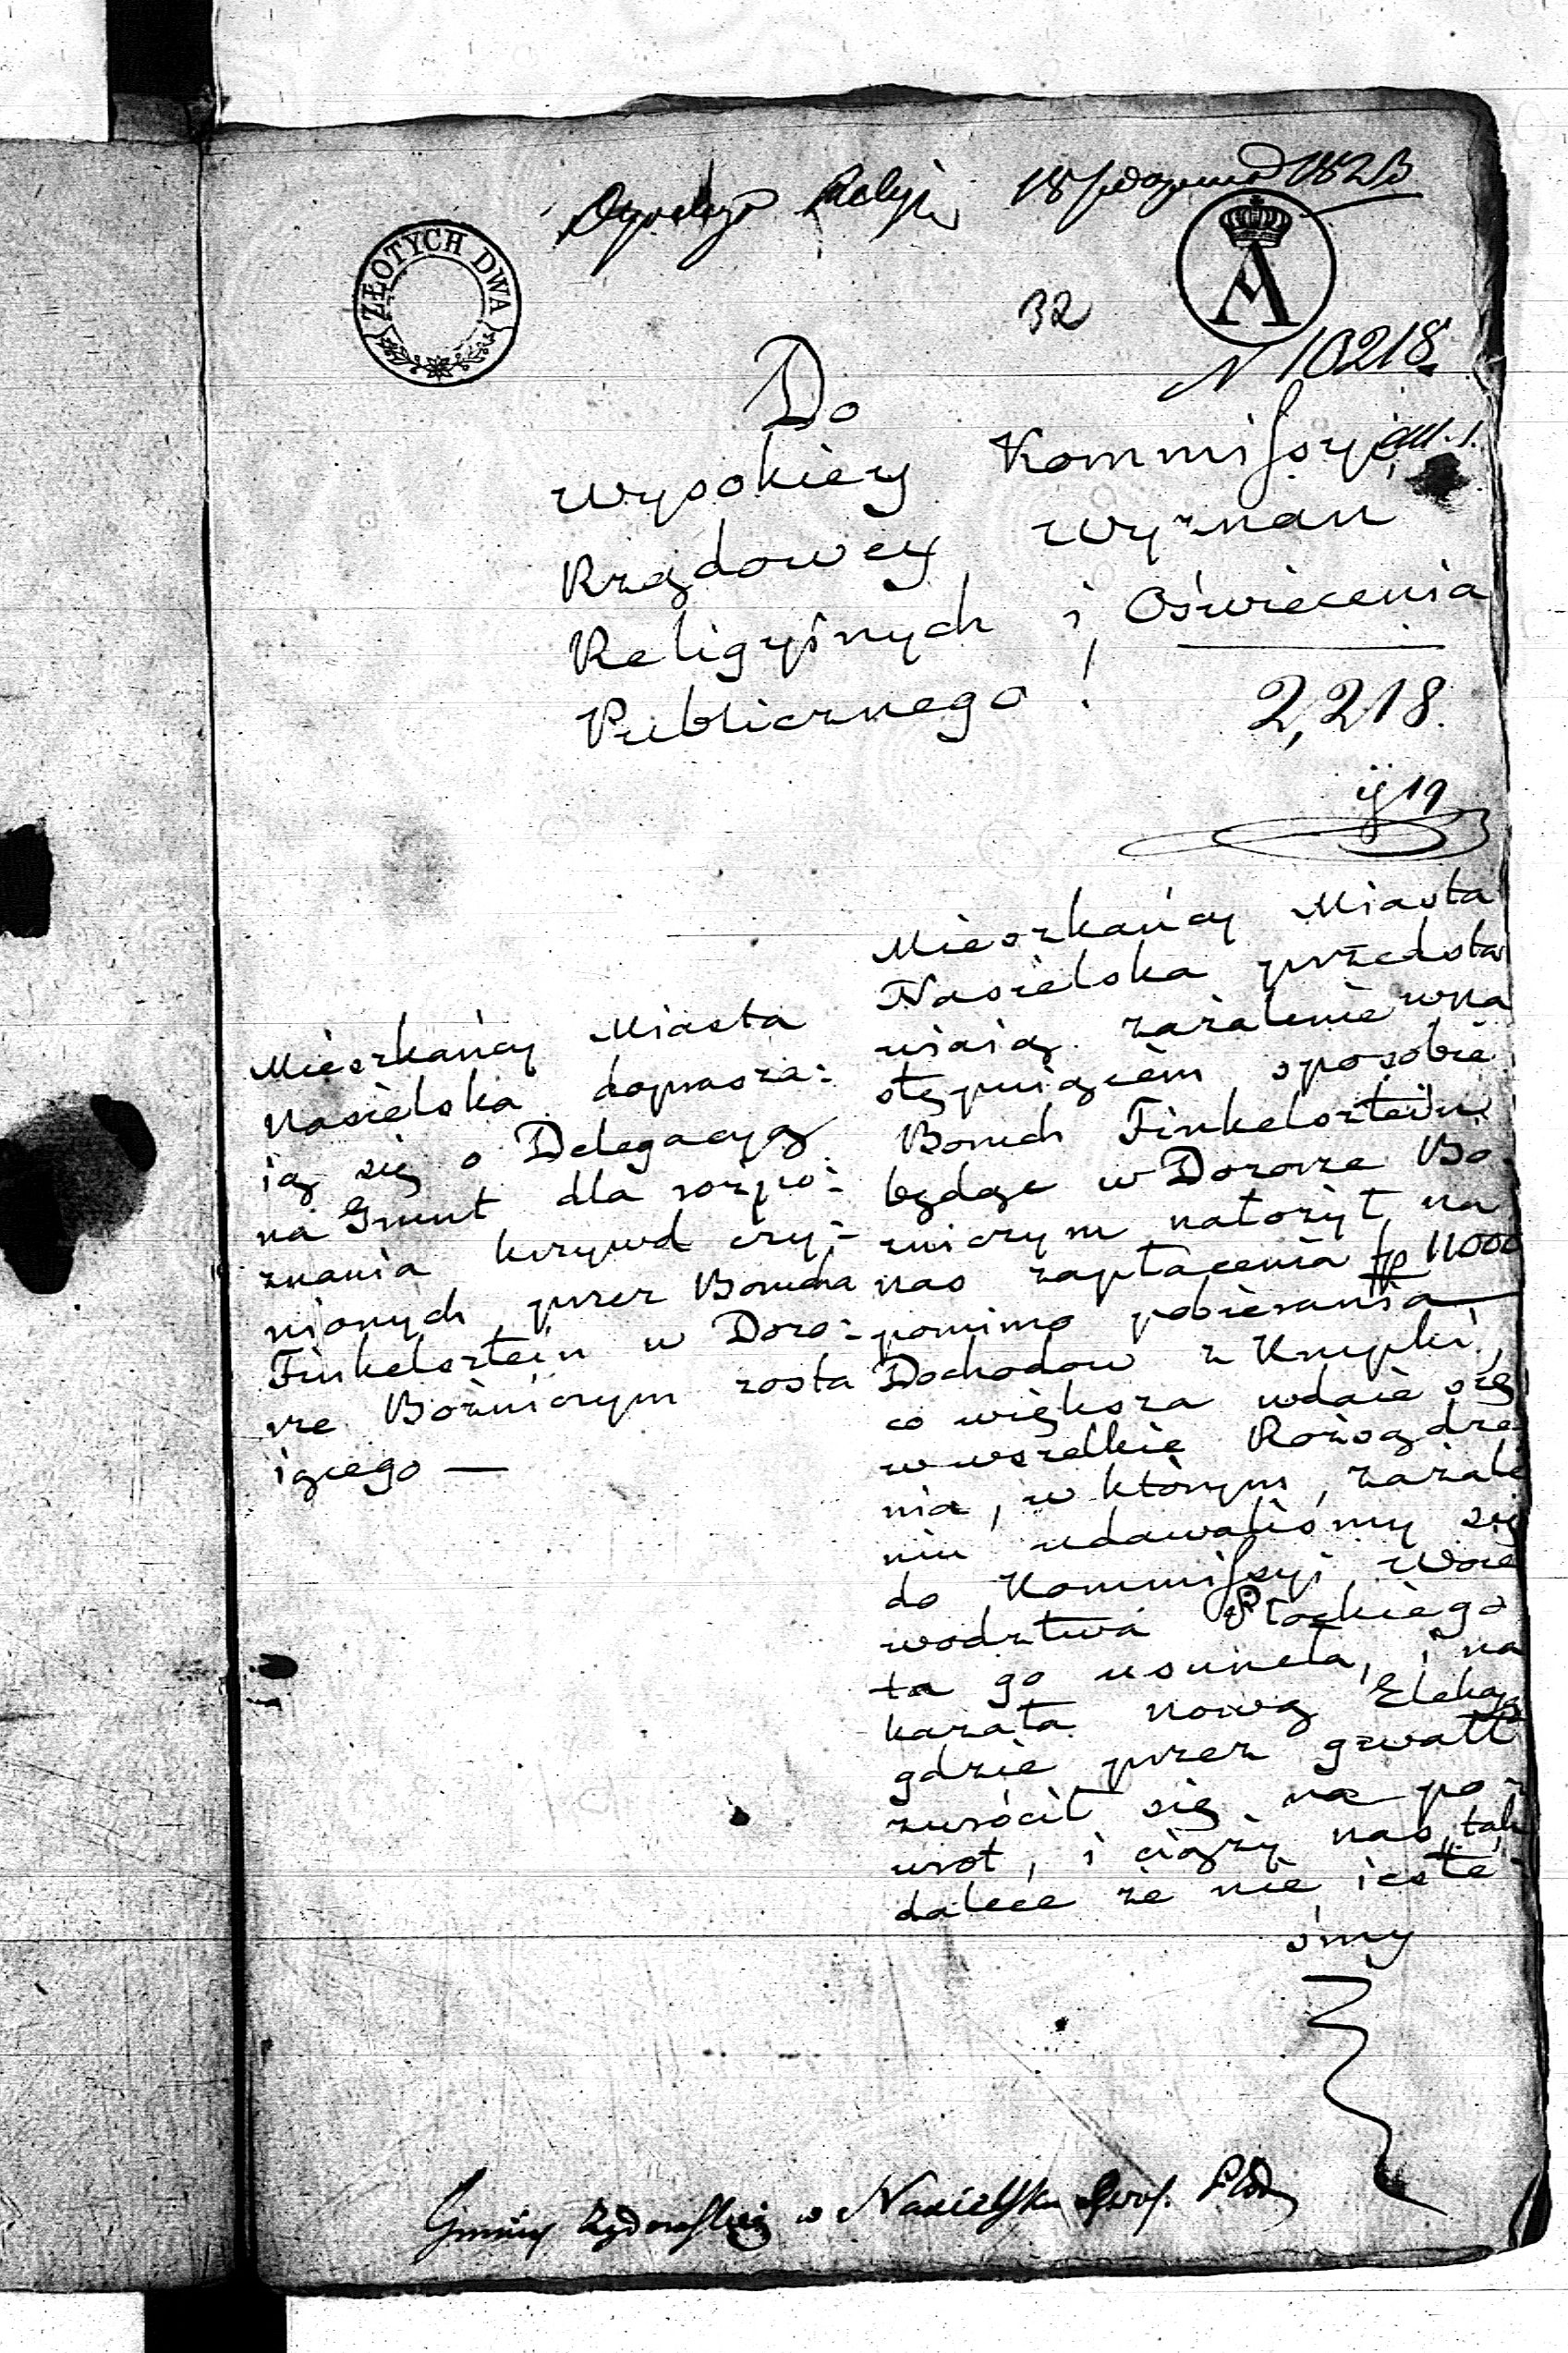 18 1823
ZŁOTYCH DWA
A
32
N 10218.
Do
Wysokiey Kommissyi
Rządowey Wyznan
Religyinych i Oświecenia
Publicznego!
2,218.
ij 19
Mieszkańcy Miasta
Nasielska doprasza:
ią się o Delegacyą
na Grunt dla rozpo:
znania krzywd czy:
nionych przez Borucha
Finkelsztein w Dozo:
rze Bożniczym zosta
iącego —
Mieszkańcy Miasta
Nasielska przedsta
wiaią zażalenie wna
stępuiącem sposobie
Boruch Finkelsztein
będąc w Dozorze Bo:
zniczym nałożył na
nas zapłacenia fp 11000
pomimo pobierania
Dochodow z Krupki,
co większa wdaie się
w wszelkie Rozsądze
nia, w którym zażale
niu udawaliśmy się
do Kommissyi Woie
wodztwa Płockiego
ta go usuneła, i na
kazała nową Elekcyą
gdzie przez gwałt
zwrócił się na po:
wrot, i ciąży nas tak
dalece że nie ieste:
śmy
Gminy Żydowskiey w Nasielsku